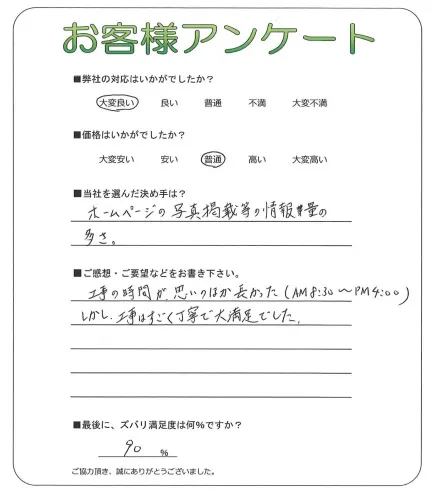 お客様アンケート
■弊社の対応はいかがでしたか?
大変良い 良い 普通 不満 大変不満
■価格はいかがでしたか?
大変安い 安い 普通 高い 大変高い
■当社を選んだ決め手は?
ホームページの写真掲載等の情報量の
多さ。
■ご感想・ご要望などをお書き下さい。
工事の時間が、思いのほか長かった(AM8:30～PM4:00)
しかし、工事はすごく丁寧で大満足でした。
■最後に、ズバリ満足度は何%ですか?
90 %
ご協力頂き、誠にありがとうございました。